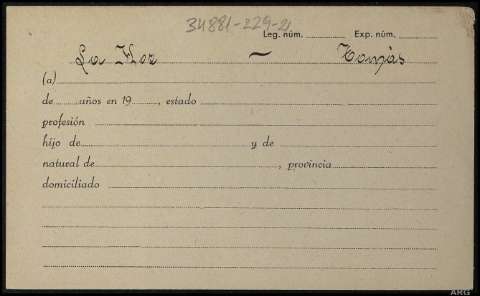 34881-229-21
Leg. núm. Exp. núm.
La Hoz — Tomás
(a)
de años en 19 , estado
profesión
hijo de y de
natural de , provincia
domiciliado
ARG